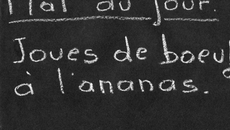 Plat du jour.
Joues de boeuf
à l'ananas.